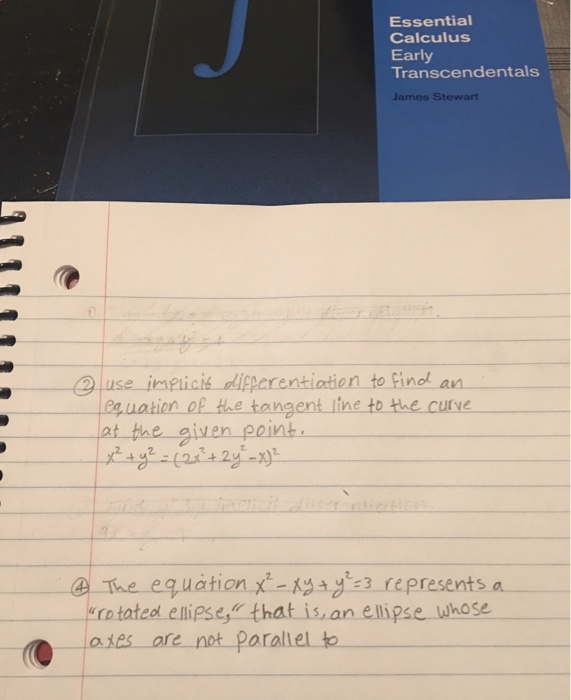 Essential
Calculus
Early
Transcendentals
James Stewart
② use implicit differentiation to find an
equation of the tangent line to the curve
at the given point.
x² + y² = (2x² + 2y² - x)²
④ The equation x² - xy + y² = 3 represents a
"rotated ellipse," that is, an ellipse whose
axes are not parallel to